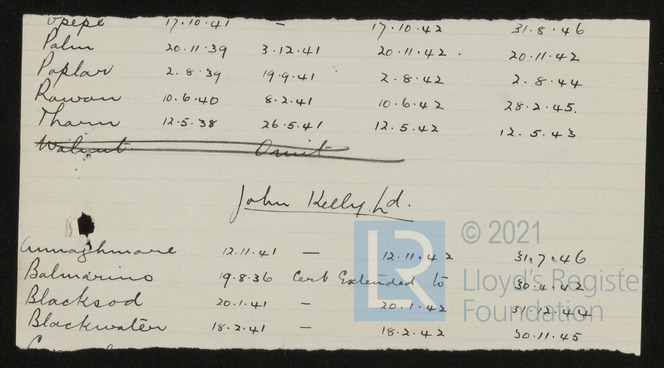 Opepe 17.10.41 — 17.10.42 31.8.46
Palm 20.11.39 3.12.41 20.11.42 . 20.11.42
Poplar 2.8.39 19.9.41 2.8.42 2.8.44
Rowan 10.6.40 8.2.41 10.6.42 28.2.45.
Thorn 12.5.38 26.5.41 12.5.42 12.5.43
Walnut Omit
John Kelly Ld.
Annaghmore 12.11.41 — 12.11.42 31.7.46
Balmarino 19.8.36 Cert Extended to 30.4.42
Blacksod 20.1.41 — 20.1.42 31.12.44
Blackwater 18.2.41 — 18.2.42 30.11.45
LR © 2021
Lloyd's Registe
Foundation